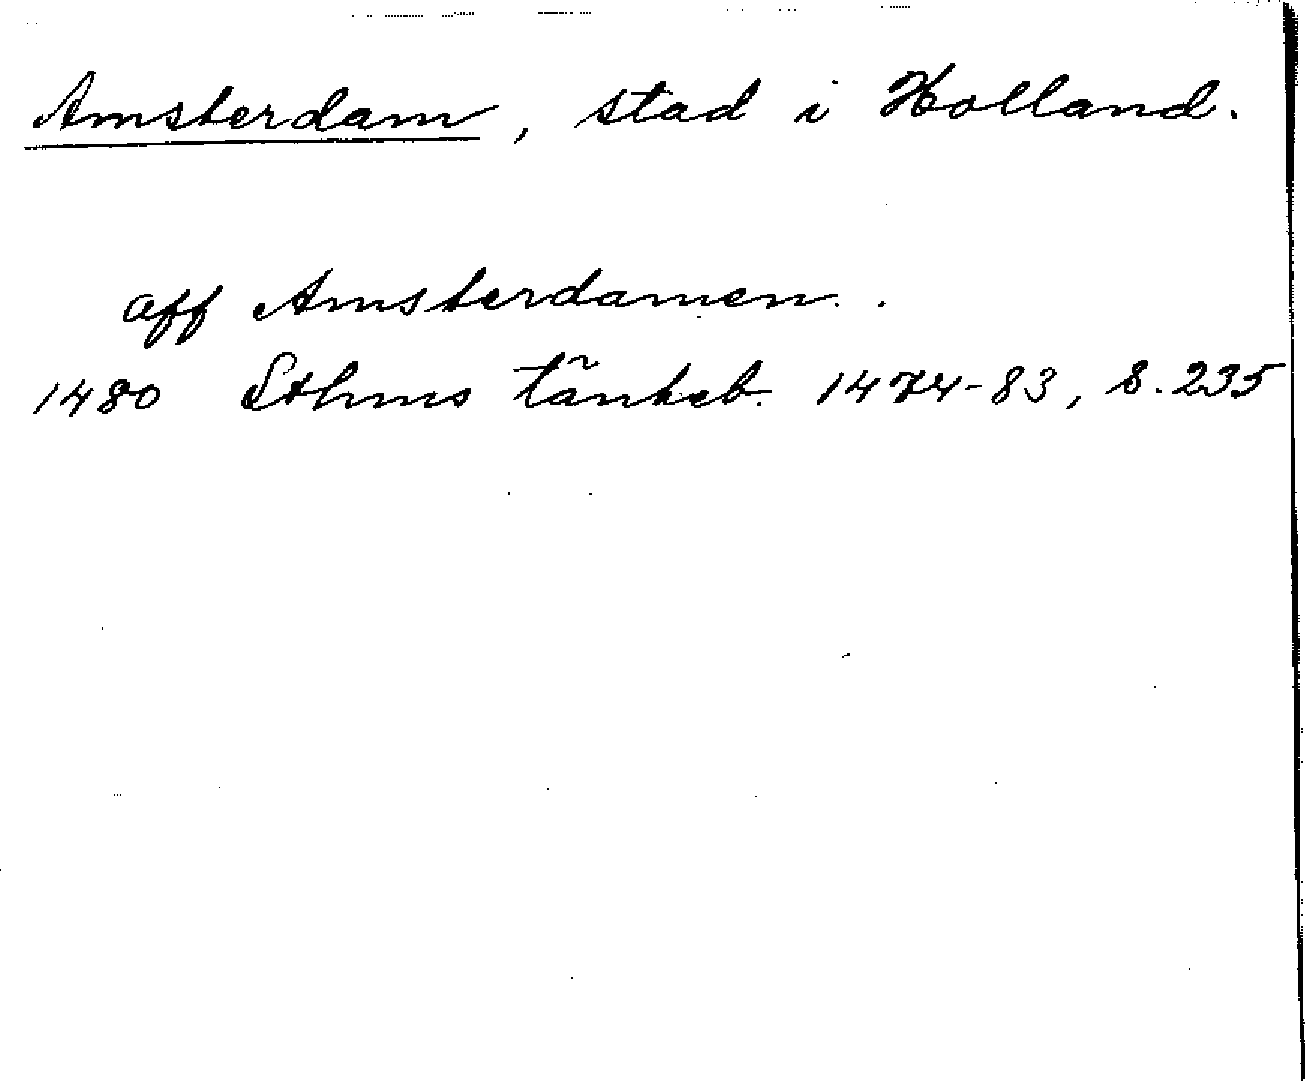 Amsterdam, stad i Holland.
aff Amsterdamen . .
1480 Sthms tänkeb. 1474-83, s. 235